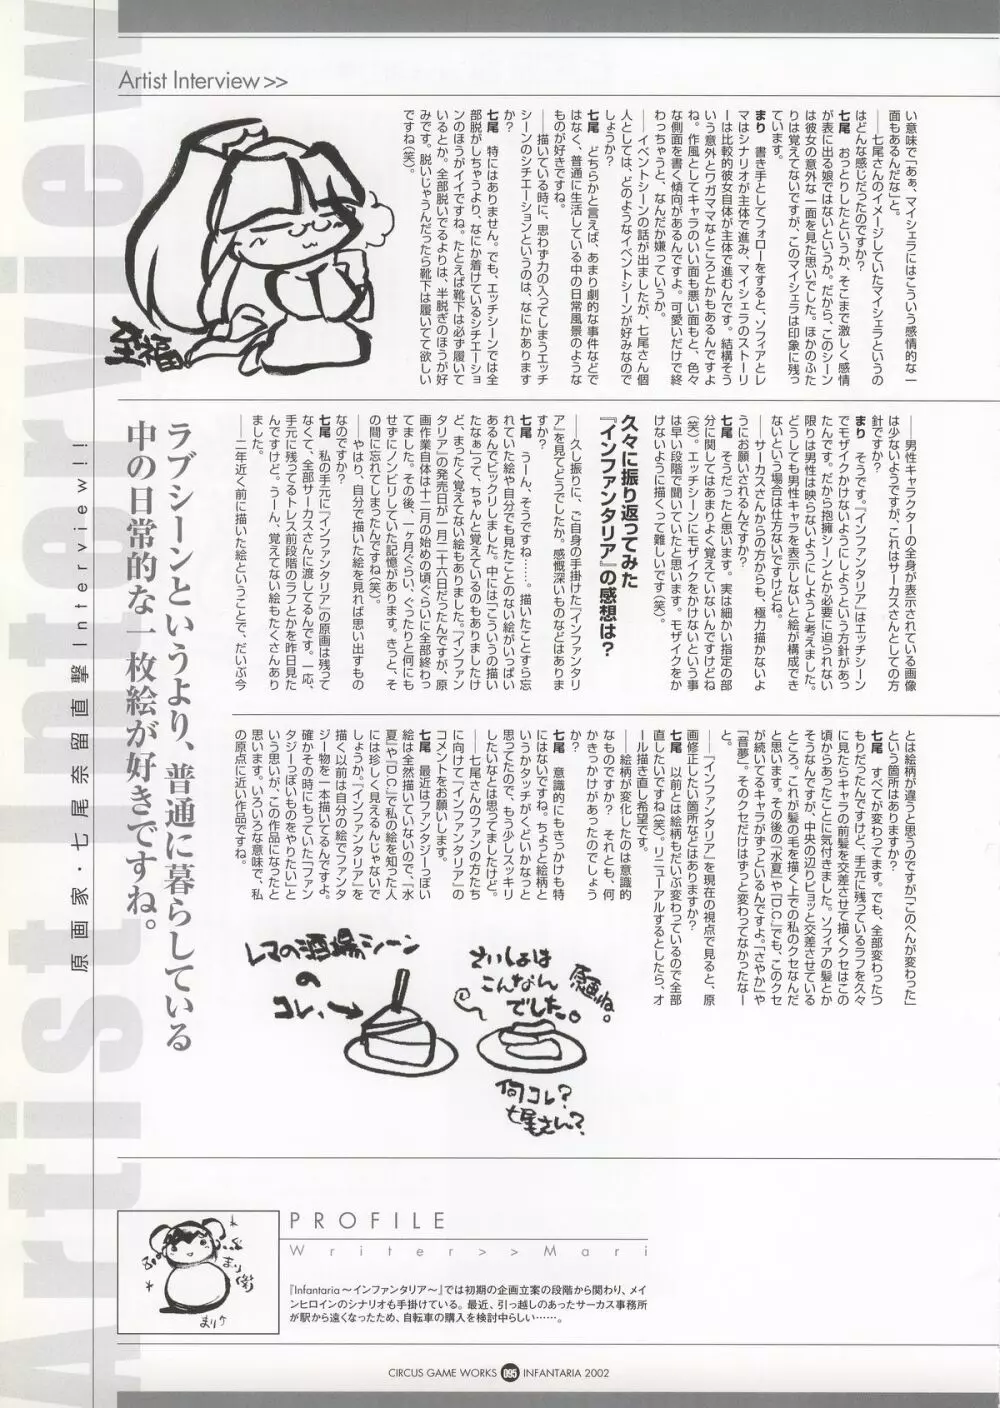 Artist Interview>>
い意味で「あぁ、マイシェラにはこういう感情的な一
面もあるんだな」と。
――七尾さんのイメージしていたマイシェラというの
はどんな感じだったのですか？
七尾　おっとりしたというか、そこまで激しく感情
が表に出る娘ではないというか。だから、このシーン
は彼女の意外な一面を見た思いでした。ほかのふた
りは覚えてないですが、このマイシェラは印象に残っ
ています。
まり　書き手としてフォローをすると、ソフィアとレ
マはシナリオが主体で進み、マイシェラのストーリ
ーは比較的彼女自体が主体で進むんです。結構そう
いう意外とワガママなところとかもあるんですよ
ね。作風としてキャラのいい面も悪い面もと、色々
な側面を書く傾向があるんですよ。可愛いだけで終
わっちゃうと、なんだか嫌っていうか。
――イベントシーンの話が出ましたが、七尾さん個
人としては、どのようなイベントシーンが好みなので
しょうか？
七尾　どちらかと言えば、あまり劇的な事件などで
はなく、普通に生活している中の日常風景のような
ものが好きですね。
――描いている時に、思わず力の入ってしまうエッチ
シーンのシチエーションというのは、なにかあります
か？
七尾　特にはありません。でも、エッチシーンでは全
部脱がしちゃうより、なにか着けているシチエーショ
ンのほうがイイですね。たとえば靴下は必ず履いて
いるとか。全部脱いでるよりは、半脱ぎのほうが好
みです。脱いじゃうんだったら靴下は履いてて欲しい
ですね（笑）。
至福
――男性キャラクターの全身が表示されている画像
は少ないようですが、これはサーカスさんとしての方
針ですか？
まり　そうです。『インファンタリア』はエッチシーン
でモザイクかけないようにしようという方針があっ
たんです。だから抱擁シーンとか必要に迫られない
限りは男性は映らないようにしようと考えました。
どうしても男性キャラを表示しないと絵が構成でき
ないという場合は仕方ないですけどね。
――サーカスさんからの方からも、極力描かないよ
うにお願いされるんですか？
七尾　そうだったと思います。実は細かい指定の部
分に関してはあまりよく覚えていないんですけどね
（笑）。エッチシーンにモザイクをかけないという事
は早い段階で聞いていたと思います。モザイクをか
けないように描くって難しいです（笑）。
久々に振り返ってみた
『インファンタリア』の感想は？
――久し振りに、ご自身の手掛けた『インファンタリ
ア』を見てどうでしたか。感慨深いものなどはありま
すか？
七尾　うーん、そうですね……。描いたことすら忘
れていた絵や自分でも見たことのない絵がいっぱい
あるんでビックリしました。中には「こういうの描い
たなぁ」って、ちゃんと覚えているのもありましたけ
ど、まったく覚えてない絵もありました。『インファン
タリア』の発売日が一月二十六日だったんですが、原
画作業自体は十二月の始めの頃ぐらいに全部終わっ
てました。その後、一ヶ月ぐらい、ぐったりと何にも
せずにノンビリしていた記憶があります。きっと、そ
の間に忘れてしまったんですね（笑）。
――やはり、自分で描いた絵を見れば思い出すもの
なのですか？
七尾　私の手元に『インファンタリア』の原画は残って
なくて、全部サーカスさんに渡してるんです。一応、
手元に残ってるトレス前段階のラフとかを昨日見た
んですけど。うーん、覚えてない絵もたくさんあり
ました。
――二年近く前に描いた絵ということで、だいぶ今
とは絵柄が違うと思うのですが「このへんが変わった」
という箇所はありますか？
七尾　すべてが変わってます。でも、全部変わったつ
もりだったんですけど、手元に残っているラフを久々
に見たらキャラの前髪を交差させて描くクセはこの
頃からあったことに気付きました。ソフィアの髪とか
そうなんですが、中央の辺りピョッと交差させている
ところ。これが髪の毛を描く上での私のクセなんだ
と思います。その後の『水夏』や『D.C.』でも、このクセ
が続いてるキャラがずっといるんですよ。「さやか」や
「音夢」。そのクセだけはずっと変わってなかったなー
と。
――『インファンタリア』を現在の視点で見ると、原
画修正したい箇所などはありますか？
七尾　以前とは絵柄もだいぶ変わっているので全部
直したいですね（笑）。リニューアルするとしたら、オ
ール描き直し希望です。
――絵柄が変化したのは意識的
なものですか？　それとも、何
かきっかけがあったのでしょう
か？
七尾　意識的にもきっかけも特
にはないですね。ちょっと絵柄と
いうかタッチがくどいかなっと
思ってたので、もう少しスッキリ
したいなとは思ってましたけど。
――七尾さんのファンの方たち
に向けて『インファンタリア』の
コメントをお願いします。
七尾　最近はファンタジーっぽい
絵は全然描いていないので、『水
夏』や『D.C.』で私の絵を知った人
には珍しく見えるんじゃないで
しょうか。『インファンタリア』を
描く以前は自分の絵でファンタ
ジー物を一本描いてるんですよ。
確かその時にもっていた「ファン
タジーっぽいものをやりたい」と
いう思いが、この作品になったと
思います。いろいろな意味で、私
の原点に近い作品ですね。
ラブシーンというより、普通に暮らしている
中の日常的な一枚絵が好きですね。
原画家・七尾奈留直撃Interview!!
Artist Interview
レマの酒場シーン
の
コレ、→
さいしょは
こんなん
でした。
原画ね。
何コレ？
七尾さん？
まり
PROFILE
Writer>>Mari
『Infantaria～インファンタリア～』では初期の企画立案の段階から関わり、メイ
ンヒロインのシナリオも手掛けている。最近、引っ越しのあったサーカス事務所
が駅から遠くなったため、自転車の購入を検討中らしい……。
CIRCUS GAME WORKS 095 INFANTARIA 2002